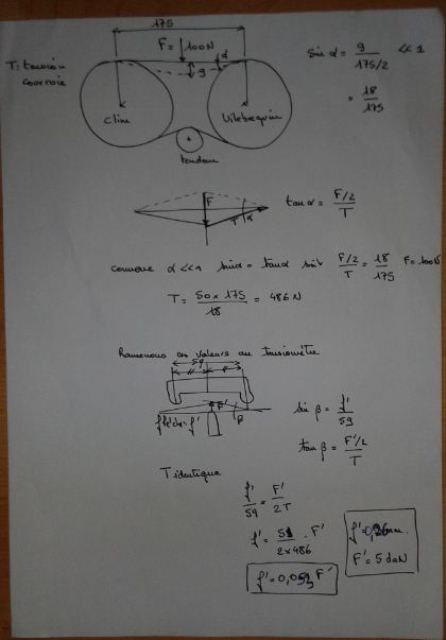 175
F = 100N
α
g
sin α = 9 / 175/2 << 1
= 18 / 175
T: tension courroie
Clim
Vilebrequin
tendeur
F
T
α
tan α = F/2 / T
comme α << 1 sin α = tan α soit F/2 / T = 18 / 175 F = 100N
T = 50 x 175 / 18 = 486 N
Ramenons ces valeurs au tensiomètre
59
F'
β
flèche: f'
sin β = f' / 59
tan β = F'/2 / T
T identique
f' / 59 = F' / 2T
f' = 59 / 2x486 . F'
f' = 0,059 F'
F' = 5 daN